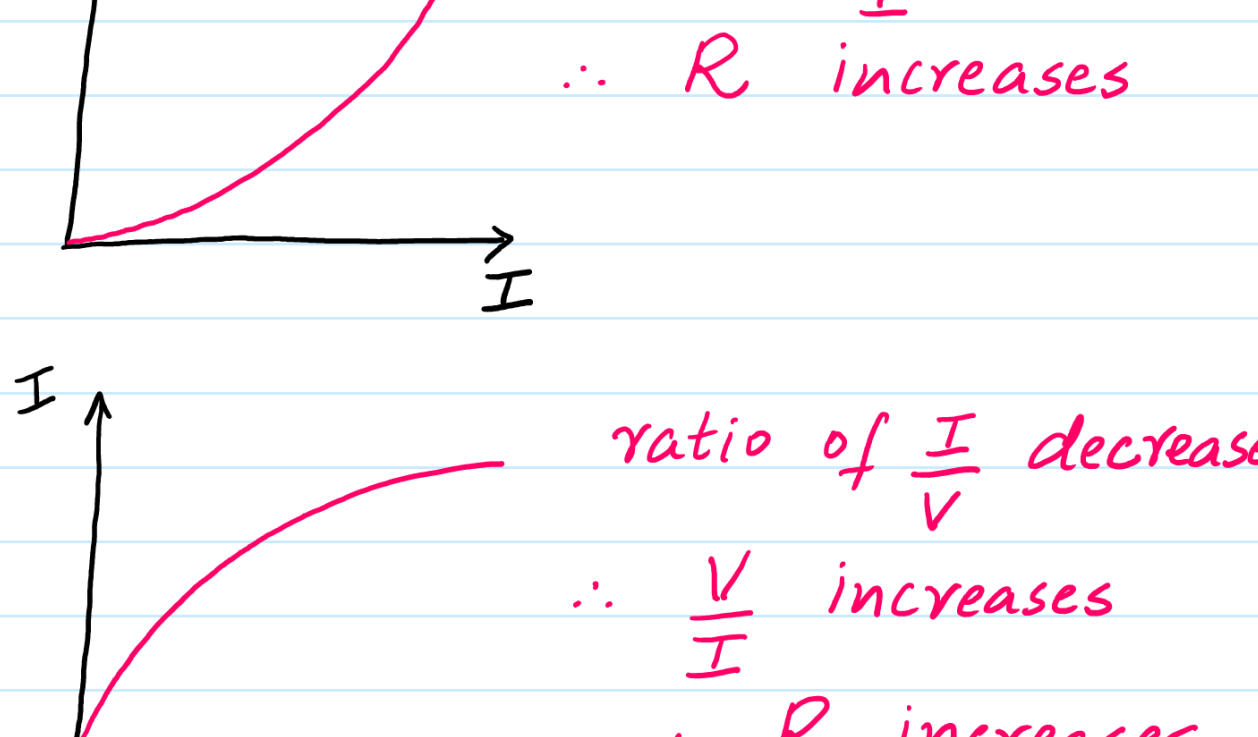 I
∴ R increases
I
I
ratio of I/V decrease
∴ V/I increases
∴ R increases